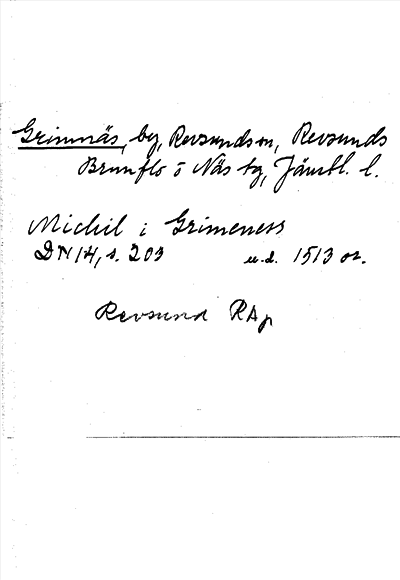 Grimnäs, by, Revsunds sn, Revsunds
Brunflo o Näs tg, Jämtl. l.
Michil i Grimeness
DN 14, s. 203 u.d. 1513 or.
Revsund RAp